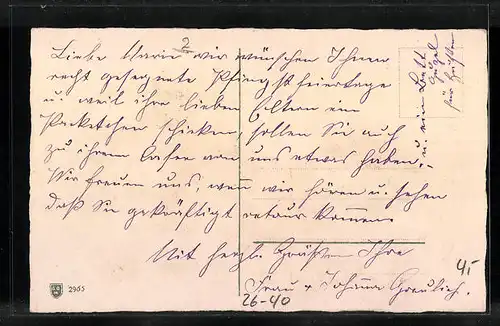 Liebe Marie wir wünschen Ihnen
recht gesegnete Pfingstfeiertage
u. weil ihre lieben Eltern ein
Packetchen schicken, sollen Sie auch
zu ihrem Cafee von uns etwas haben,
Wir freuen uns, wenn wir hören u. sehen
daß Sie gekräftigt retour kommen.
Mit herzl. Grüßen Ihre
Frau u. Johanna
u. ein
für
2965
26-40
4,-